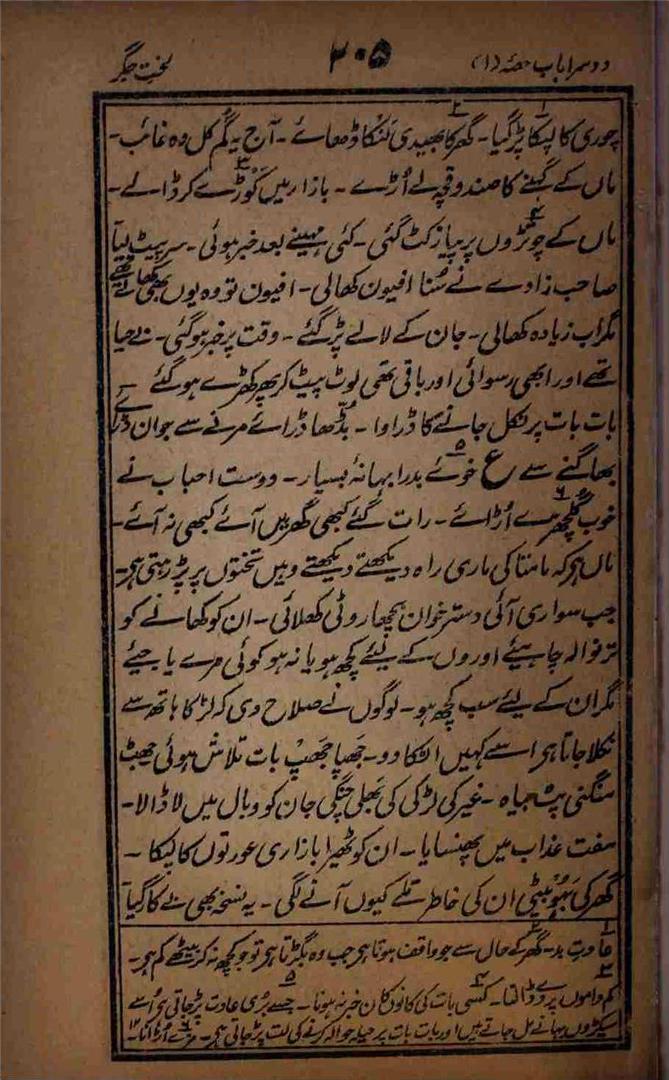 دوسرا باب حصّہ (۱) ۲۰۵ لختِ جگر
چوری کا لپکا پڑ گیا۔ گھر کا بھیدی لنکا ڈھائے۔ آج یہ گُم کل وہ غائب۔
ماں کے گہنے کا صندوقچہ لے اُڑے۔ بازار میں کَوڑے کر ڈالے۔
ماں کے چوتڑوں پر پیاز کٹ گئی۔ کئی مہینے بعد خبر ہوئی۔ سر پیٹ لیا
صاحب زادے نے سُنا افیون کھالی۔ افیون تو وہ یوں بھی کھاتے تھے
مگر اب زیادہ کھالی۔ جان کے لالے پڑ گئے۔ وقت پر خبر ہو گئی۔ بے حیا
تھے اور ابھی رسوائی اور باقی تھی لوٹ پیٹ کر پھر کھڑے ہو گئے
بات بات پر نکل جانے کا ڈراوا۔ بُڈّھا ڈرائے مرنے سے جوان ڈرائے
بھاگنے سے ع خوئے بدرا بہانۂ بسیار۔ دوست احباب نے
خوب گلچھرے اُڑائے۔ رات گئے کبھی گھر میں آئے کبھی نہ آئے۔
ماں ہو کہ مامتا کی ماری راہ دیکھتے دیکھتے وہیں تختوں پر پڑ رہتی ہو۔
جب سواری آئی دسترخوان بچھا روٹی کھلائی۔ ان کو کھانے کو
تر نوالہ چاہیئے اوروں کے لیئے کچھ ہو یا نہ ہو کوئی مرے یا جیئے
مگر ان کے لیئے سب کچھ ہو۔ لوگوں نے صلاح دی کہ لڑکا ہاتھ سے
نکلا جاتا ہو اسے کہیں اٹکا دو۔ جَھپا جَھپ بات تلاش ہوئی جھٹ
منگنی پٹ بیاہ۔ غیر کی لڑکی کی بھلی چنگی جان کو وبال میں لا ڈالا۔
مفت عذاب میں پھنسایا۔ ان کو ٹھیرا بازاری عورتوں کا لپکا۔
گھر کی بَہُو بیٹی ان کی خاطر تلے کیوں آنے لگی۔ یہ نسخہ بھی بے کار گیا
عادتِ بد۔ گھر کے حال سے جو واقف ہوتا ہو جب وہ بگڑتا ہو تو جو کچھ نہ کر بیٹھے کم ہو۔
کم داموں پر دے ڈالنا۔ کسی بات کی کانوں کان خبر نہ ہونا۔ جسے بُری عادت پڑ جاتی ہو اُسے
سیکڑوں بہانے مل جاتے ہیں اور بات بات پر حیلہ حوالہ کرنے کی لت پڑ جاتی ہو۔ مزے اُڑانا۔